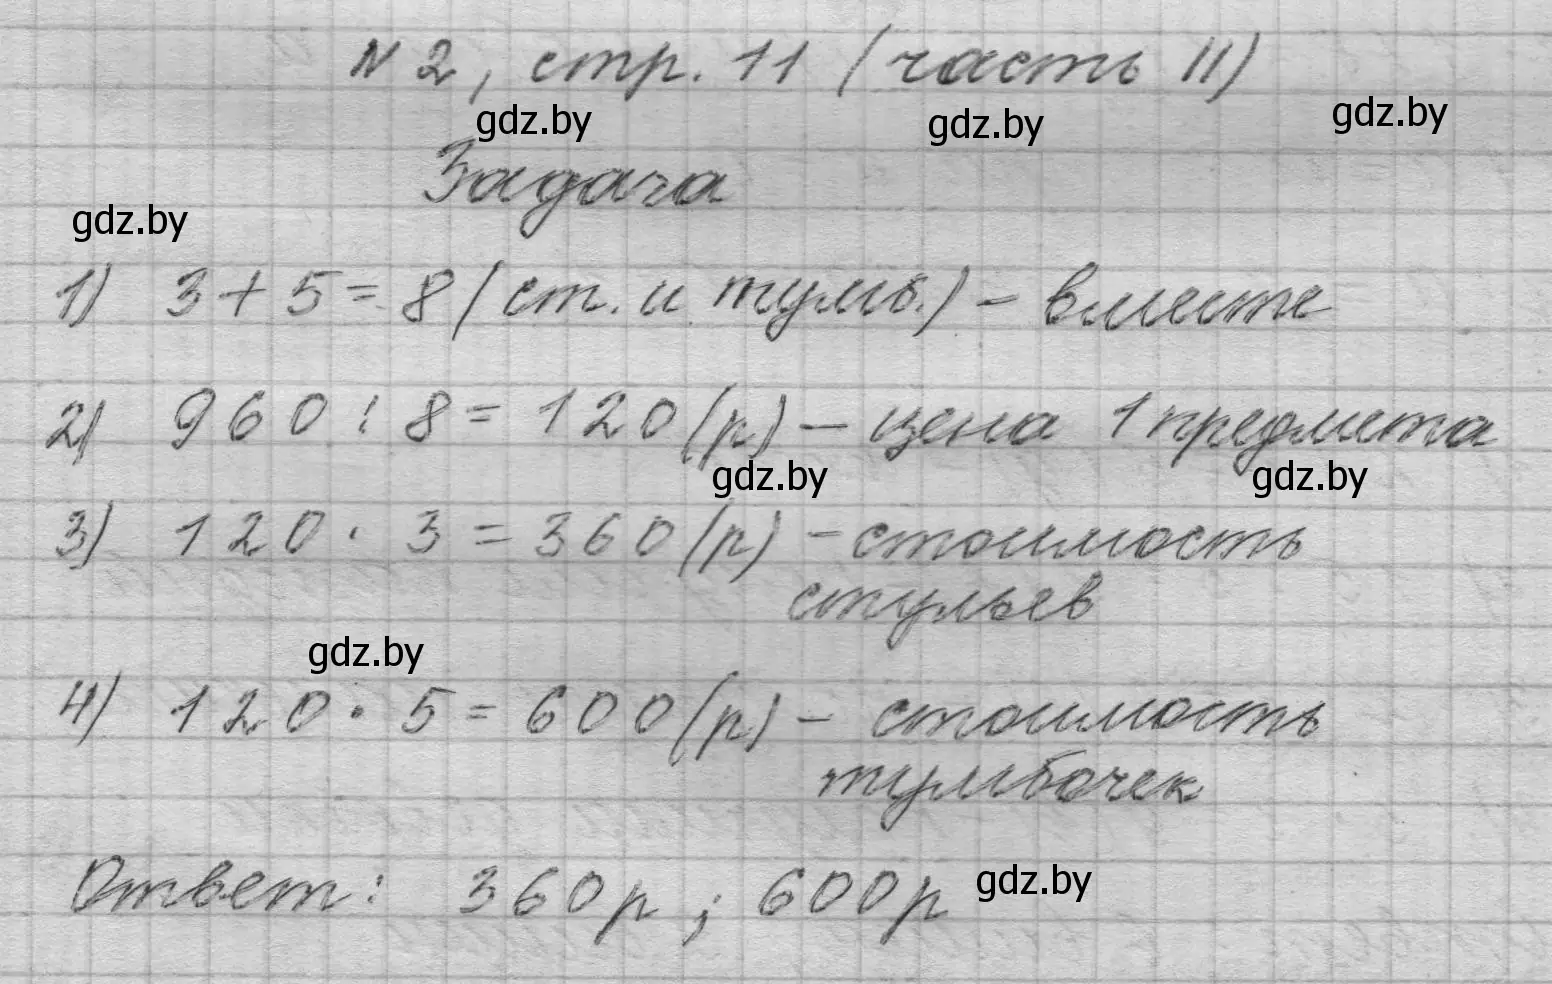 N 2, стр. 11 (часть II)
gdz.by gdz.by gdz.by
Задача
gdz.by
1) 3 + 5 = 8 (ст. и тумб.) - вместе
2) 960 : 8 = 120 (р) - цена 1 предмета
gdz.by gdz.by
3) 120 · 3 = 360 (р) - стоимость
стульев
gdz.by
4) 120 · 5 = 600 (р) - стоимость
тумбочек
Ответ: 360р ; 600р
gdz.by